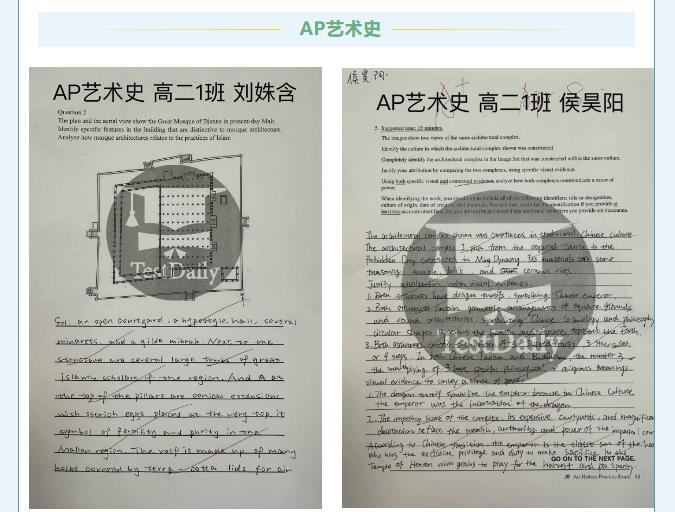 AP艺术史
AP艺术史 高二1班 刘姝含
Question 2
The plan and the aerial view show the Great Mosque of Djenne in present-day Mali.
Identify specific features in the building that are distinctive to mosque architecture.
Analyze how mosque architectures relates to the practices of Islam.
TestDaily
Sol: an open courtyard, a hypostyle hall, several
minarets, and a qibla mihrab. Next to the
structure are several large tombs of great
Islamic scholars of the region. And A as
the top of the pillars are conical extensions
with ostrich eggs placed at the very top, it
symbol of fertility and purity in the
Malian region. The roof is made up of many
holes covered by terra-cotta lids for air
侯昊阳
A+
AP艺术史 高二1班 侯昊阳
5. Suggested time: 15 minutes.
The images show two views of the same architectural complex.
Identify the culture in which the architectural complex shown was constructed.
Completely identify the architectural complex in the Image Set that was constructed within the same culture.
Justify your attribution by comparing the two complexes, using specific visual evidence.
Using both specific visual and contextual evidence, analyze how both complexes communicate a sense of
power.
When identifying the work, you should try to include all of the following identifiers: title or designation,
culture of origin, date of creation, and materials. You will earn credit for the identification if you provide at
least two accurate identifiers, but you will not be penalized if any additional identifiers you provide are inaccurate.
The architectural complex shown was constructed in traditional Chinese culture.
The architectural complex I pick from the required course is the
Forbidden City constructed in Ming Dynasty. Its materials are stone
masonry, marble, brick, and ceramic tiles.
Justify attribution with visual evidence:
1. Both structures have dragon motifs, symbolizing Chinese emperor.
2. Both structures contain geometric arrangements of square grounds
and round architectures, symbolizing Chinese cosmology and philosophy
circular shapes represent the heaven and square represent the Earth.
3. Both structures contain
or 9 steps. In both Chinese Taoism and Buddhism, the number 3
the multiplying of 3 have specific philosophical & religious meanings.
visual evidence to convey a sense of power:
1. The dragon motif symbolize the emperor because in Chinese Culture,
the emperor was the incarnation of the dragon.
2. The imposing scale of the complex, its expensive courtyards, and magnificent
decoration reflect the wealth, authority and power of the imperial
According to Chinese tradition, the emperor is the eldest son of the
who has the exclusive privilege and duty to make sacrifice in the
Temple of Heaven with goods to pray for the harvest and prosperity.
GO ON TO THE NEXT PAGE.
AP Art History Practice Exam